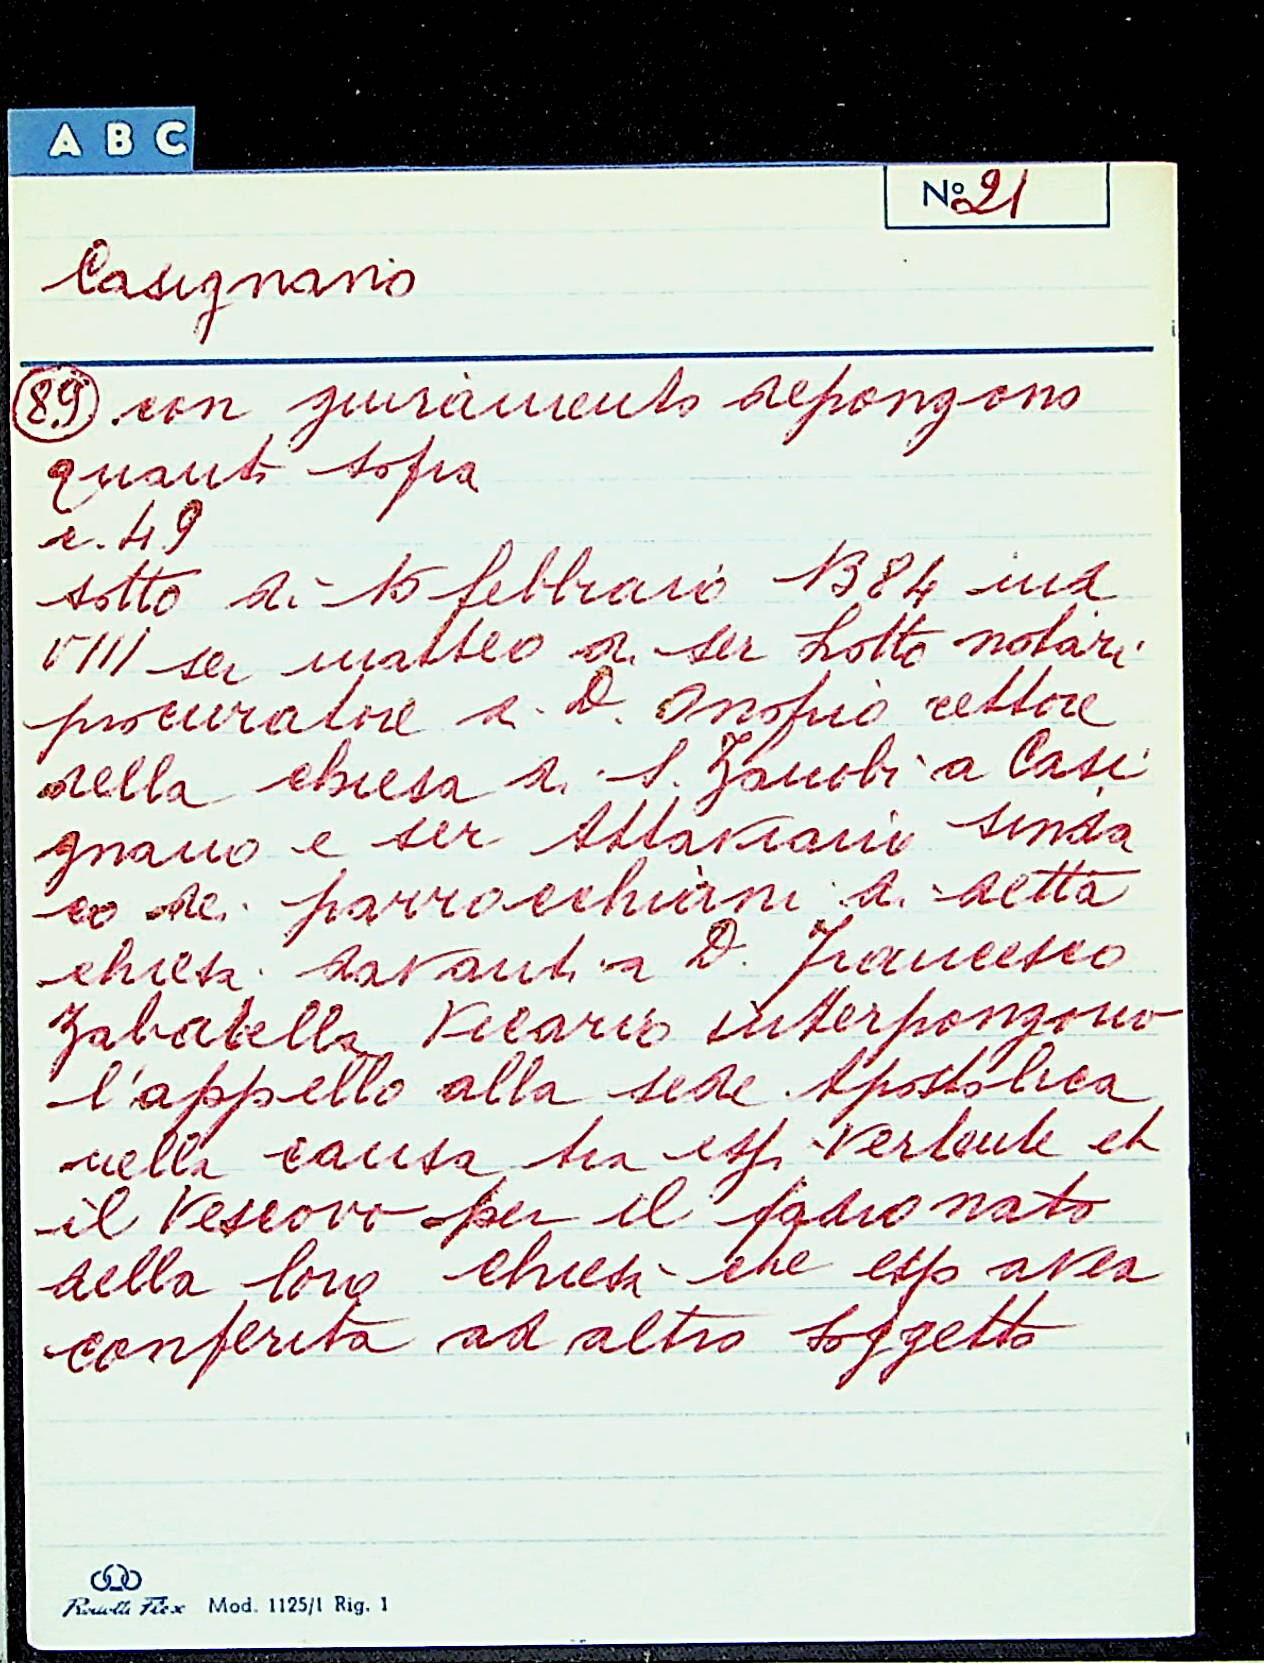 A B C
Nº 21
Casignano
89 con giuramento depongono
quanto sopra
c. 49
sotto di 15 febbraio 1384 ind
VIII ser Matteo di ser Lotto notari
procuratore di D. Onofrio rettore
della chiesa di S. Zanobi a Casi
gnano e ser Attaviano sinda
co dei parrocchiani di detta
chiesa davanti a D. Francesco
Zabatella Vicario interpongono
l'appello alla sede Apostolica
nella causa tra essi vertente et
il Vescovo per il padronato
della loro chiesa che esso avea
conferita ad altro soggetto
Mod. 1125/1 Rig. 1